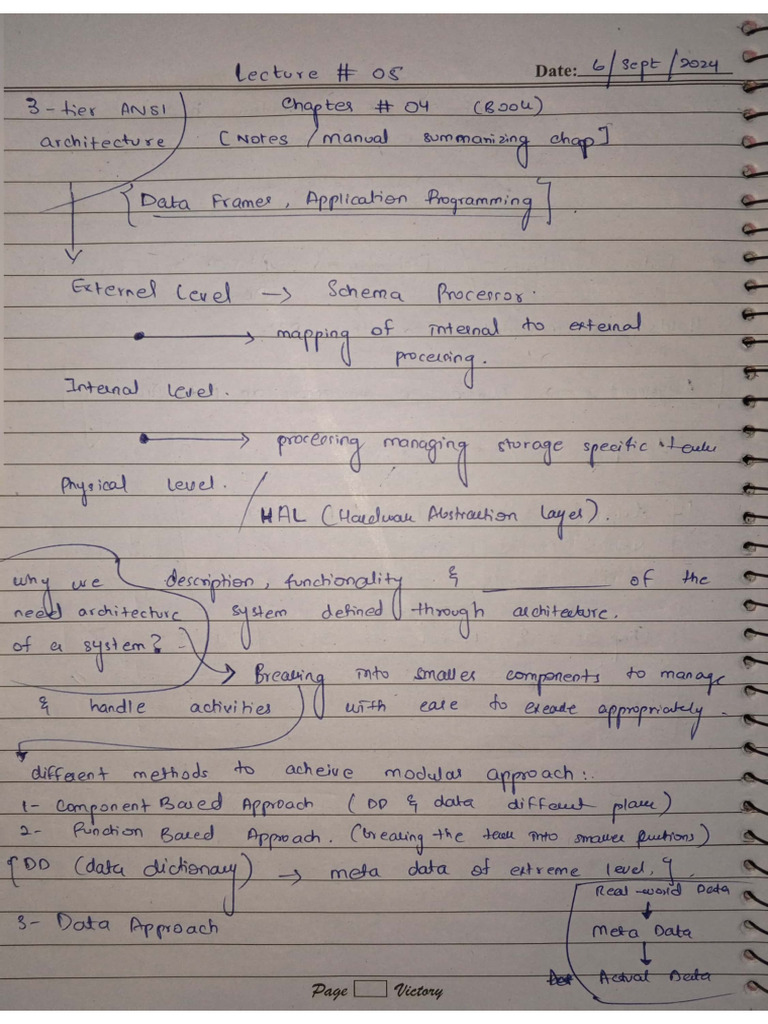 Lecture # 05
Date: 6/Sept/2024
3-tier ANSI architecture
Chapter # 04 (Book)
[Notes / manual summarizing chap]
{Data Frames, Application Programming}
Externel Level → Schema Processor.
mapping of internal to external
processing.
Internal Level.
processing managing storage specific tasks
Physical Level.
HAL (Hardware Abstraction Layer).
why we
need architecture
of a system?
description, functionality & __________ of the
system defined through architecture.
Breaking into smaller components to manage
& handle activities with ease to execute appropriately.
different methods to acheive modular approach:.
1- Component Based Approach (DD & data different place)
2- Function Based Approach. (breaking the task into smaller functions)
{DD (data dictionary) → meta data of extreme level.}
3- Data Approach
Real-world Data
↓
Meta Data
↓
Actual Data
Page Victory